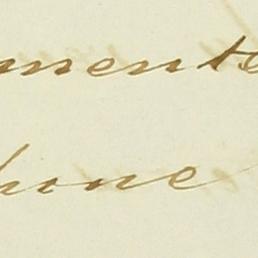 mente
hone